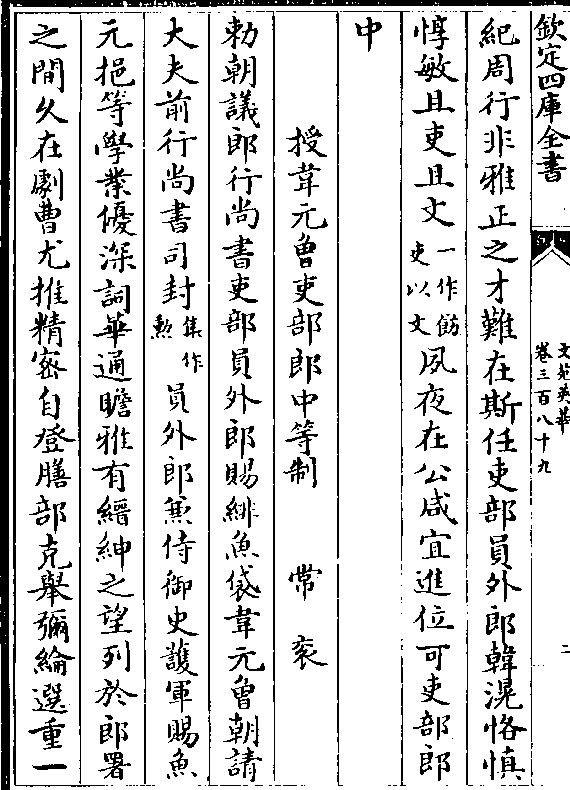 欽定四庫全書
文苑英華
卷三百八十九
二
紀周行非雅正之才難在斯任吏部員外郎韓滉恪慎
惇敏且吏且文一作飭吏以文夙夜在公咸宜進位可吏部郎
中
授韋元曾吏部郎中等制 常衮
勅朝議郎行尚書吏部員外郎賜緋魚袋韋元曾朝請
大夫前行尚書司封集作勲員外郎兼侍御史護軍賜魚
元挹等學業優深詞華通贍雅有縉紳之望列於郎署
之間久在劇曹尤推精密自登膳部克舉彌綸選重一